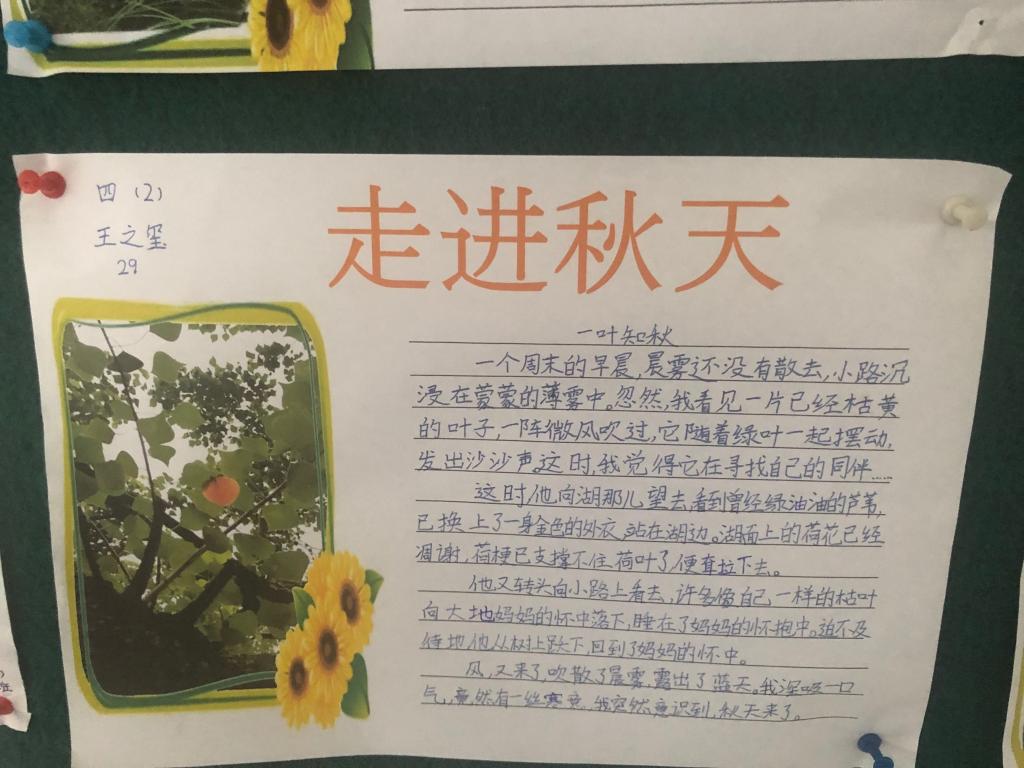 四（2）
王之玺
29
走进秋天
一叶知秋
一个周末的早晨,晨雾还没有散去,小路沉
浸在蒙蒙的薄雾中。忽然,我看见一片已经枯黄
的叶子,一阵微风吹过,它随着绿叶一起摆动,
发出沙沙声。这时,我觉得它在寻找自己的同伴……
这时,他向湖那儿望去,看到曾经绿油油的芦苇,
已换上了一身金色的外衣,站在湖边。湖面上的荷花已经
凋谢,荷梗已支撑不住荷叶了,便耷拉下去。
他又转头向小路上看去,许多像自己一样的枯叶
向大地妈妈的怀中落下,睡在了妈妈的怀抱中。迫不及
待地,他从树上跌下,回到了妈妈的怀中。
风,又来了,吹散了晨雾,露出了蓝天。我深吸一口
气,竟然有一丝寒意,我突然意识到,秋天来了。